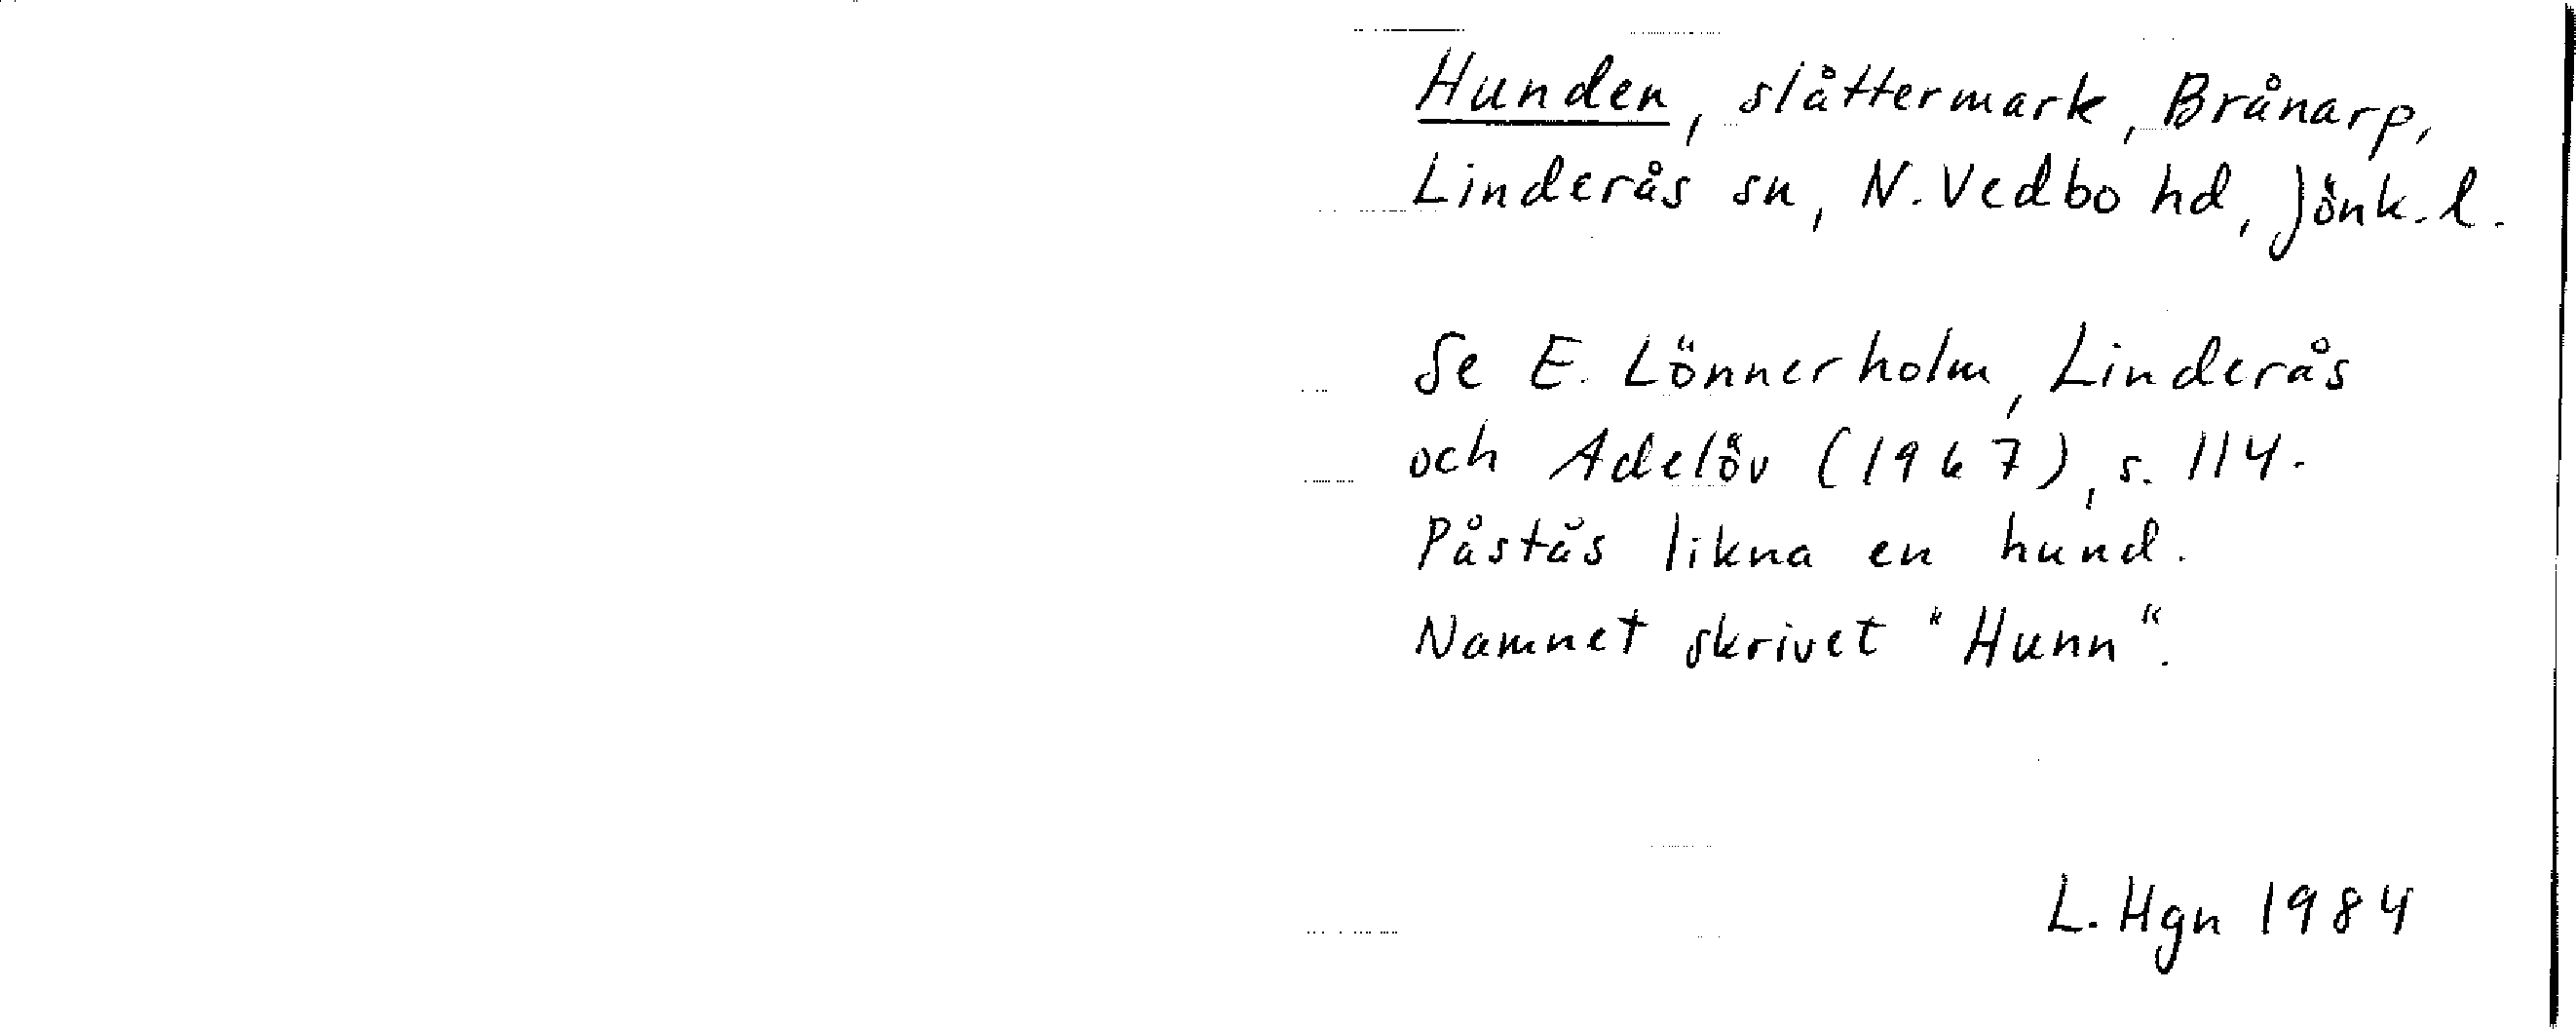 Hunden, slåttermark, Brånarp,
Linderås sn, N. Vedbo hd, Jönk. l.
Se E. Lönnerholm, Linderås
och Adelöv (1967), s. 114.
Påstås likna en hund.
Namnet skrivet "Hunn".
L. Hgn 1984